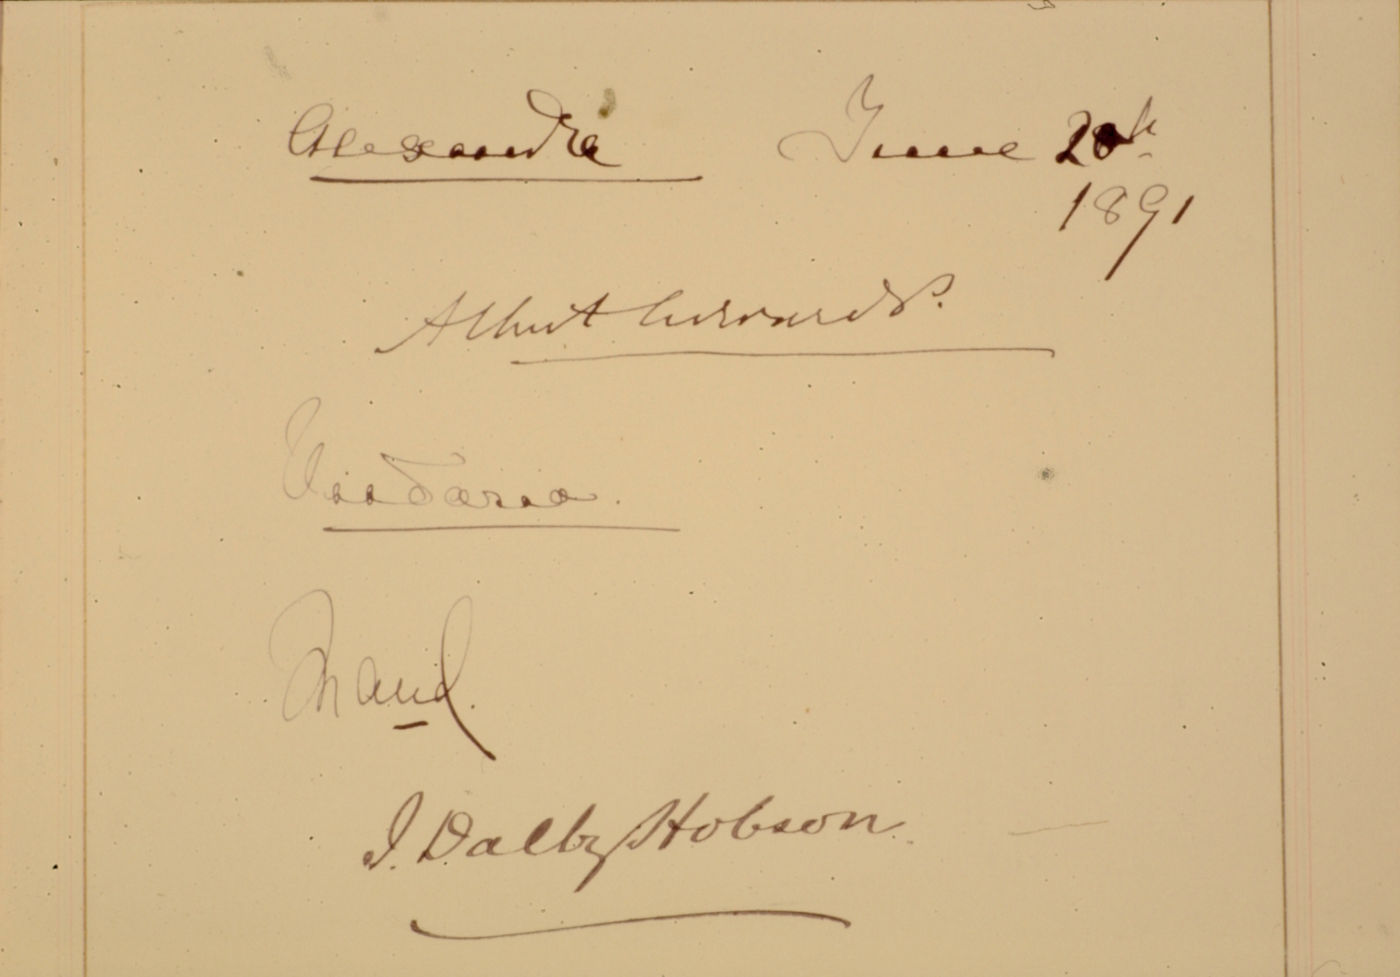 Alexandra June 20th
1891
Albert Edward P.
Victoria.
Maud.
J. Dalby Hobson.